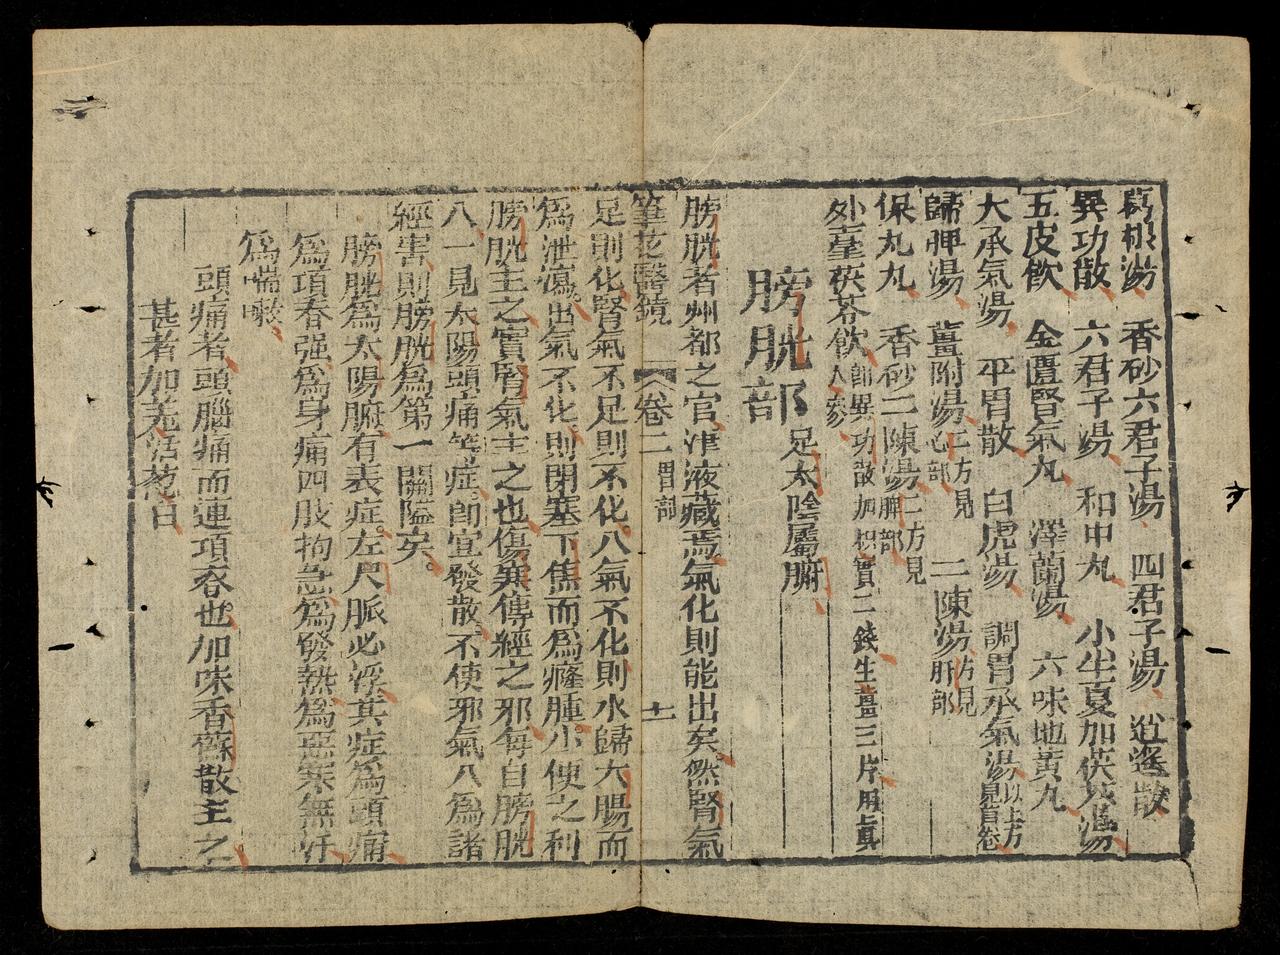 葛根湯 香砂六君子湯 四君子湯 逍遙散
異功散 六君子湯 和中丸 小半夏加茯苓湯
五皮飲 金匱腎氣丸 澤蘭湯 六味地黃丸
大承氣湯 平胃散 白虎湯 調胃承氣湯以上方見首卷
歸脾湯 薑附湯二方見心部 二陳湯方見肝部
保丸丸 香砂二陳湯二方見脾部
外臺茯苓飲即異功散加枳實二錢生薑三片用眞人參
膀胱部足太陰屬腑
膀胱者州都之官津液藏焉氣化則能出矣然腎氣
筆花醫鏡 卷二 胃部 十一
足則化腎氣不足則不化八氣不化則水歸六腸而
爲泄瀉出氣不化則閉塞下焦而爲癃腫小便之利
膀胱主之實腎氣主之也傷寒傳經之邪每自膀胱
八一見太陽頭痛等症卽宜發散不使邪氣八爲諸
經害則膀胱爲第一關隘矣。
膀胱爲太陽腑有表症左尺脈必浮其症爲頭痛
爲項脊强爲身痛四肢拘急爲發熱爲惡寒無汗
爲喘嗽
頭痛者頭腦痛而連項脊也加味香蘇散主之
甚者加羌活葱白